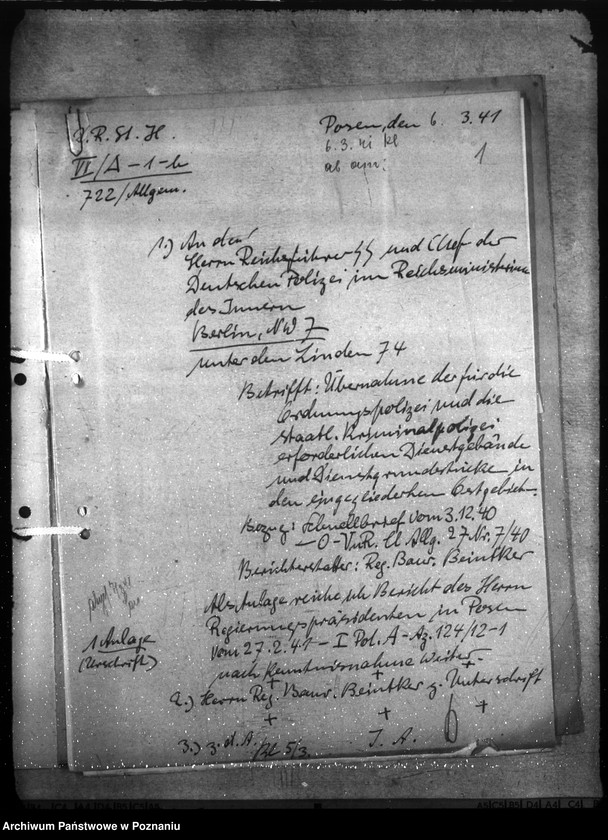 D.R.St.H.
VI/A-1-b
722/Allgem.
Posen, den 6. 3. 41
6.3.41 Kl
ab am:
1
1.) An den
Herrn Reichsführer SS und Chef der
Deutschen Polizei im Reichsministerium
des Innern
Berlin, NW 7
Unter den Linden 74
Betrifft: Übernahme der für die
Ordnungspolizei und die
staatl. Kriminalpolizei
erforderlichen Dienstgebäude
und Dienstgrundstücke in
den eingegliederten Ostgebieten.
Bezug: Schnellbrief vom 3.12.40
– O-VuR. II Allg. 27 Nr. 7/40
Berichterstatter: Reg. Baur. Beintker
Als Anlage reiche ich Bericht des Herrn
Regierungspräsidenten in Posen
vom 27.2.41 – I Pol. A – Az. 124/12-1
nach Kenntnisnahme weiter.
1 Anlage
(Urschrift)
2.) Herrn Reg. Baur. Beintker z. Unterschrift
3.) z. d. A.
Kl 5/3
I. A.
Archiwum Państwowe w Poznaniu